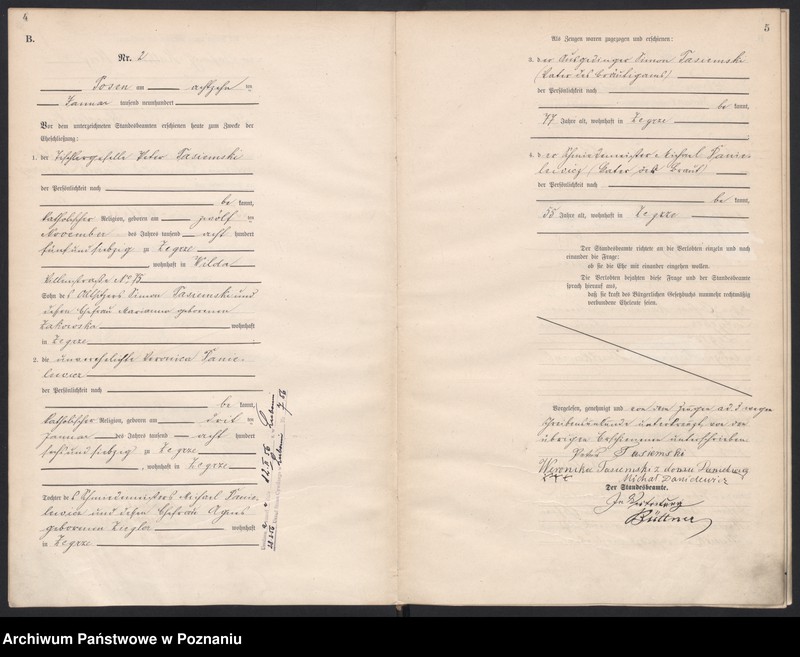 4
B.
Nr. 2
Posen am achtzehn ten
Januar tausend neunhundert
Vor dem unterzeichneten Standesbeamten erschienen heute zum Zwecke der
Eheschließung:
1. der Tischlergeselle Peter Tasiemski
der Persönlichkeit nach
be kannt,
katholischer Religion, geboren am zwölften
November des Jahres tausend acht hundert
fünfundsiebzig zu Zegrze
, wohnhaft in Wilda
No 75
Sohn des Simon Tasiemski und
dessen Ehefrau Marianna geborenen
Zakowska wohnhaft
in Zegrze
2. die unverehelichte Veronica Danie-
lewicz
der Persönlichkeit nach
be kannt,
katholischer Religion, geboren am drit ten
Januar des Jahres tausend acht hundert
sechsundsiebzig zu Zegrze
, wohnhaft in Zegrze
Tochter des Schmiedemeisters Michael Danie-
lewicz und dessen Ehefrau Agnes
geborenen Ziegler wohnhaft
in Zegrze
5
Als Zeugen waren zugezogen und erschienen:
3. der Ausgedinger Simon Tasiemski
(Vater des Bräutigams)
der Persönlichkeit nach
be kannt,
77 Jahre alt, wohnhaft in Zegrze
4. der Schmiedemeister Michael Danie-
lewicz (Vater der Braut)
der Persönlichkeit nach
be kannt,
55 Jahre alt, wohnhaft in Zegrze
Der Standesbeamte richtete an die Verlobten einzeln und nach
einander die Frage:
ob sie die Ehe mit einander eingehen wollen.
Die Verlobten bejahten diese Frage und der Standesbeamte
sprach hierauf aus,
daß sie kraft des Bürgerlichen Gesetzbuchs nunmehr rechtmäßig
verbundene Eheleute seien.
Vorgelesen, genehmigt und von dem Zeugen ad 3 wegen
Schreibensunkunde unterkreuzt, von den
übrigen Erschienenen unterschrieben
Peter Tasiemski
Weronika Tasiemska z domu Danielewicz
+++ Michał Danielewicz
Der Standesbeamte.
In Vertretung
Büttner
Archiwum Państwowe w Poznaniu